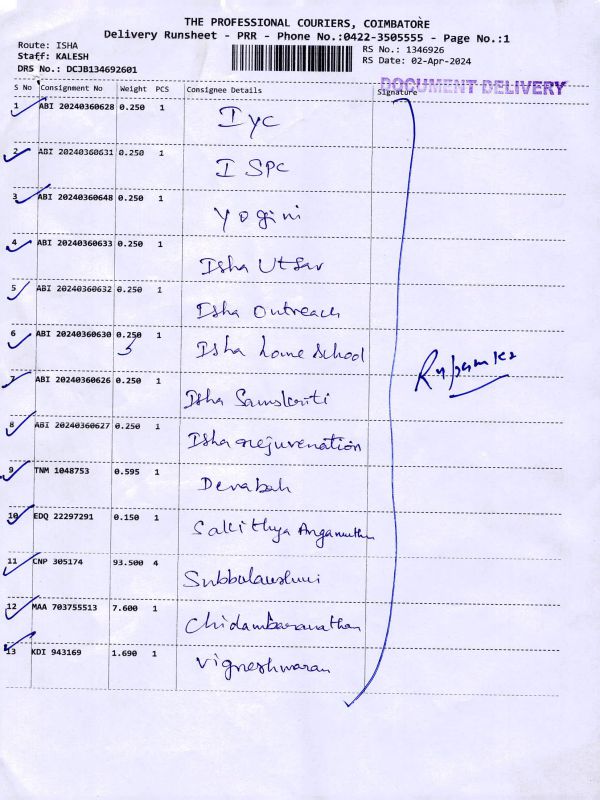 THE PROFESSIONAL COURIERS, COIMBATORE
Delivery Runsheet - PRR - Phone No.:0422-3505555 - Page No.:1
Route: ISHA
Staff: KALESH
DRS No.: DCJB134692601
RS No.: 1346926
RS Date: 02-Apr-2024
DOCUMENT DELIVERY
S No Consignment No Weight PCS Consignee Details Signature
1 ABI 20240360628 0.250 1 IYC
2 ABI 20240360631 0.250 1 ISPC
3 ABI 20240360648 0.250 1 Yogini
4 ABI 20240360633 0.250 1 Isha Utsav
5 ABI 20240360632 0.250 1 Isha Outreach
6 ABI 20240360630 0.250 1 Isha home School
5
7 ABI 20240360626 0.250 1 Isha Samskriti
8 ABI 20240360627 0.250 1 Isha rejuvenation
9 TNM 1048753 0.595 1 Devabah
10 EDQ 22297291 0.150 1
11 CNP 305174 93.500 4
12 MAA 703755513 7.600 1 Chidambaranathan
13 KDI 943169 1.690 1 Vigneshwaran